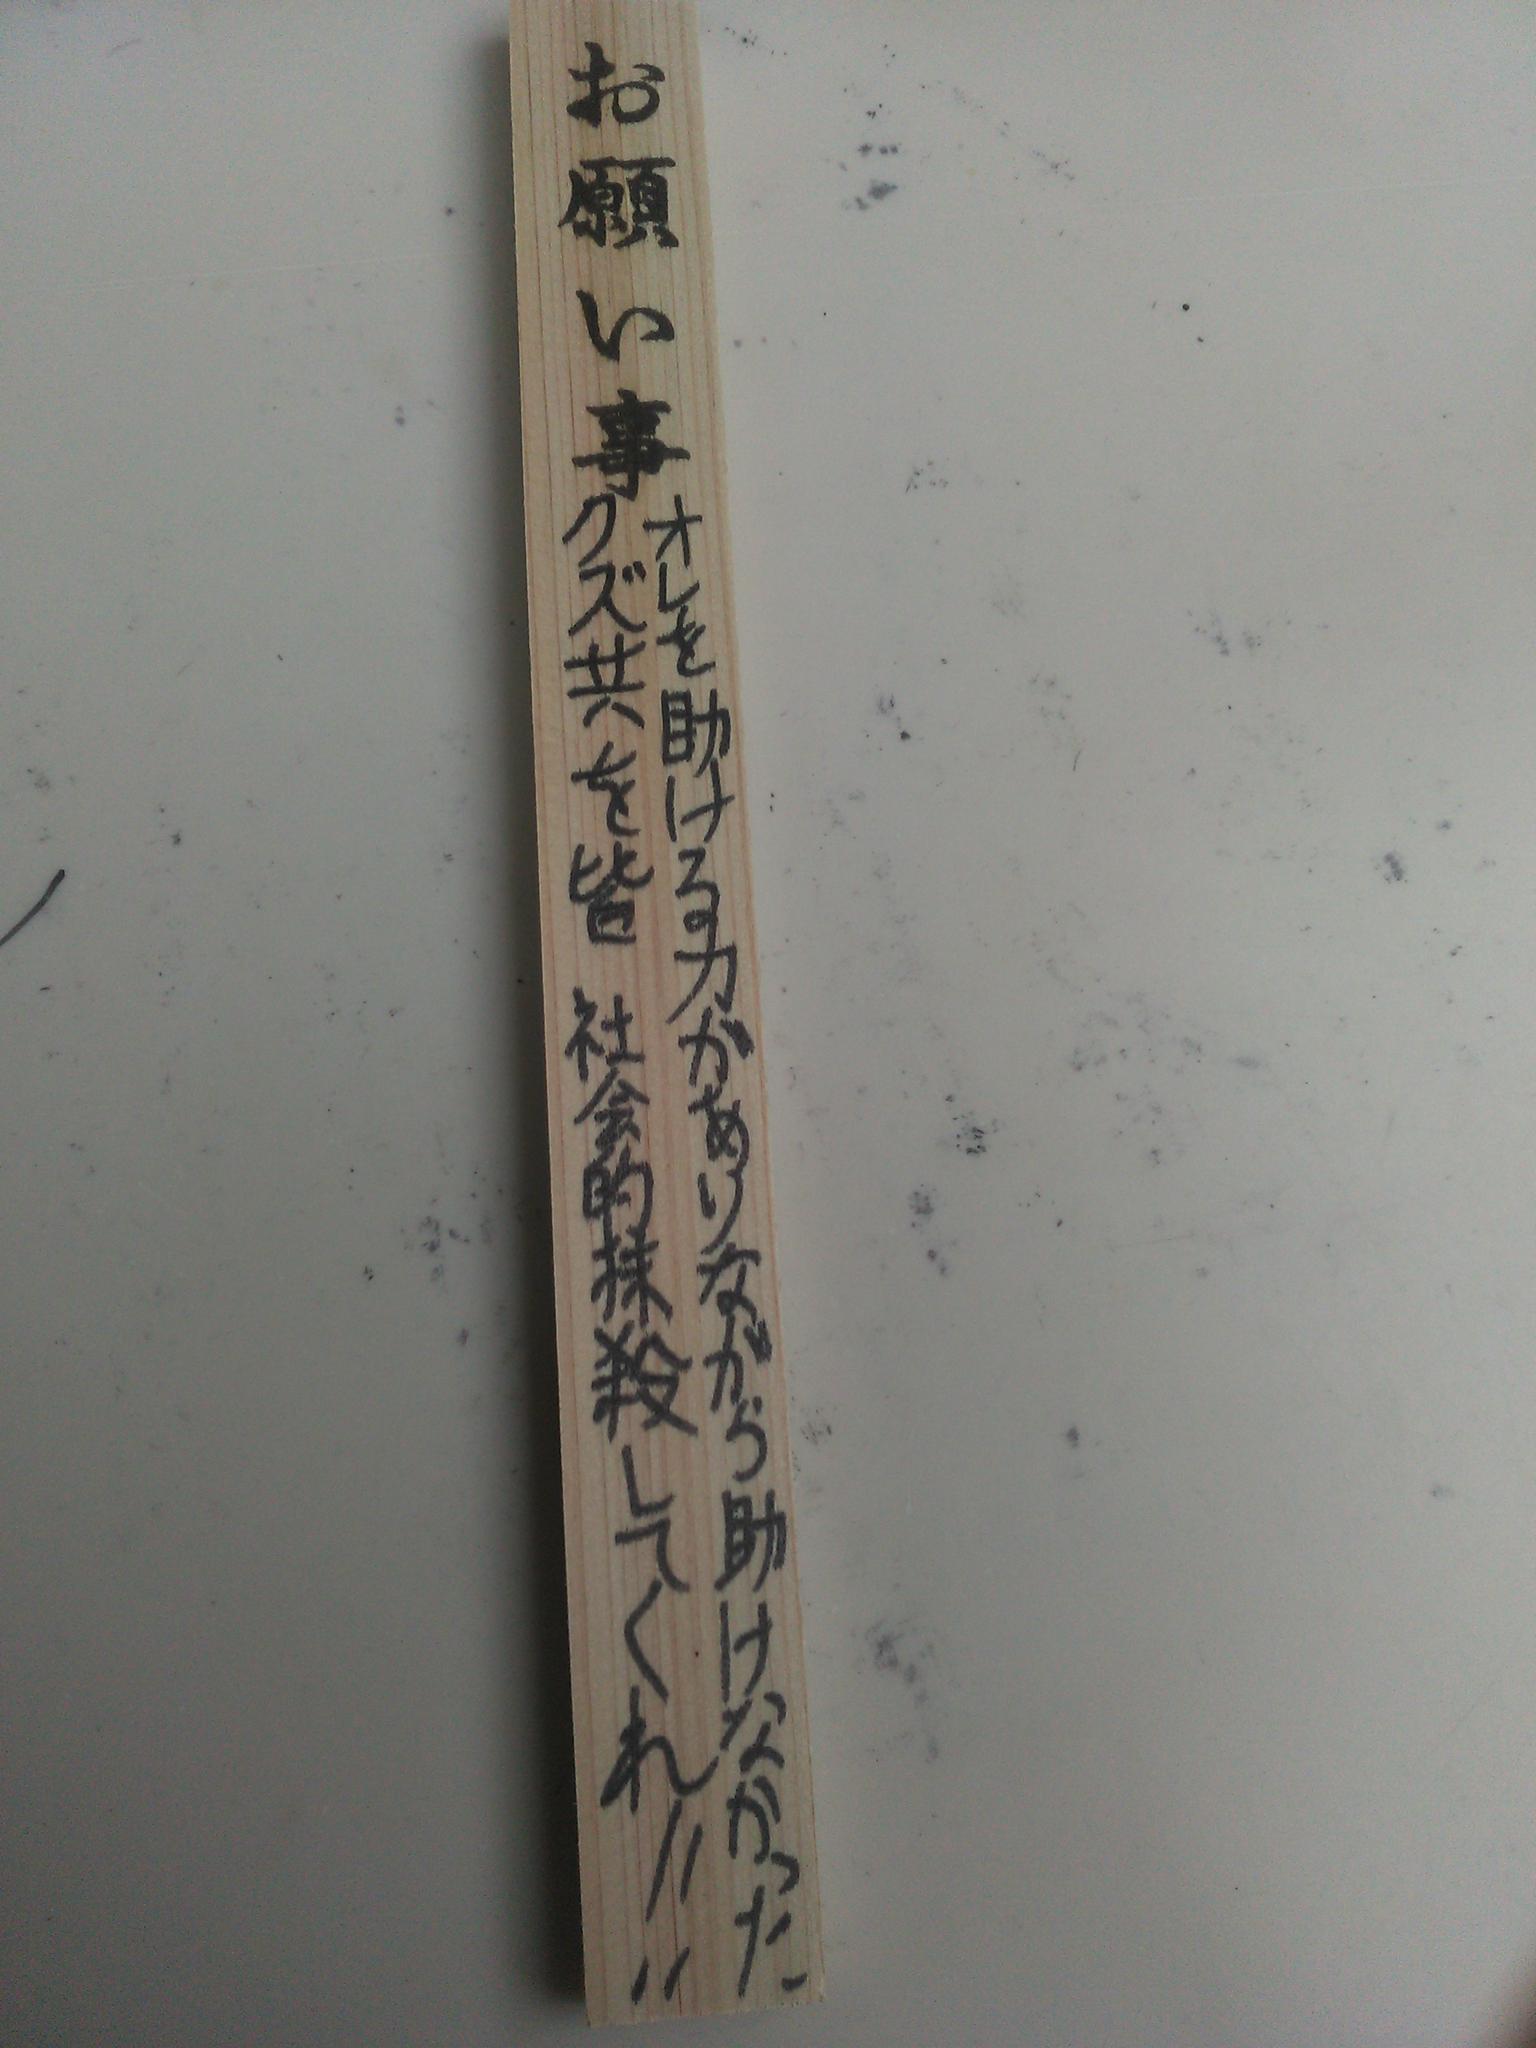 お願い事
オレを助ける力がありながら助けなかった
クズ共を皆 社会的抹殺してくれ!!